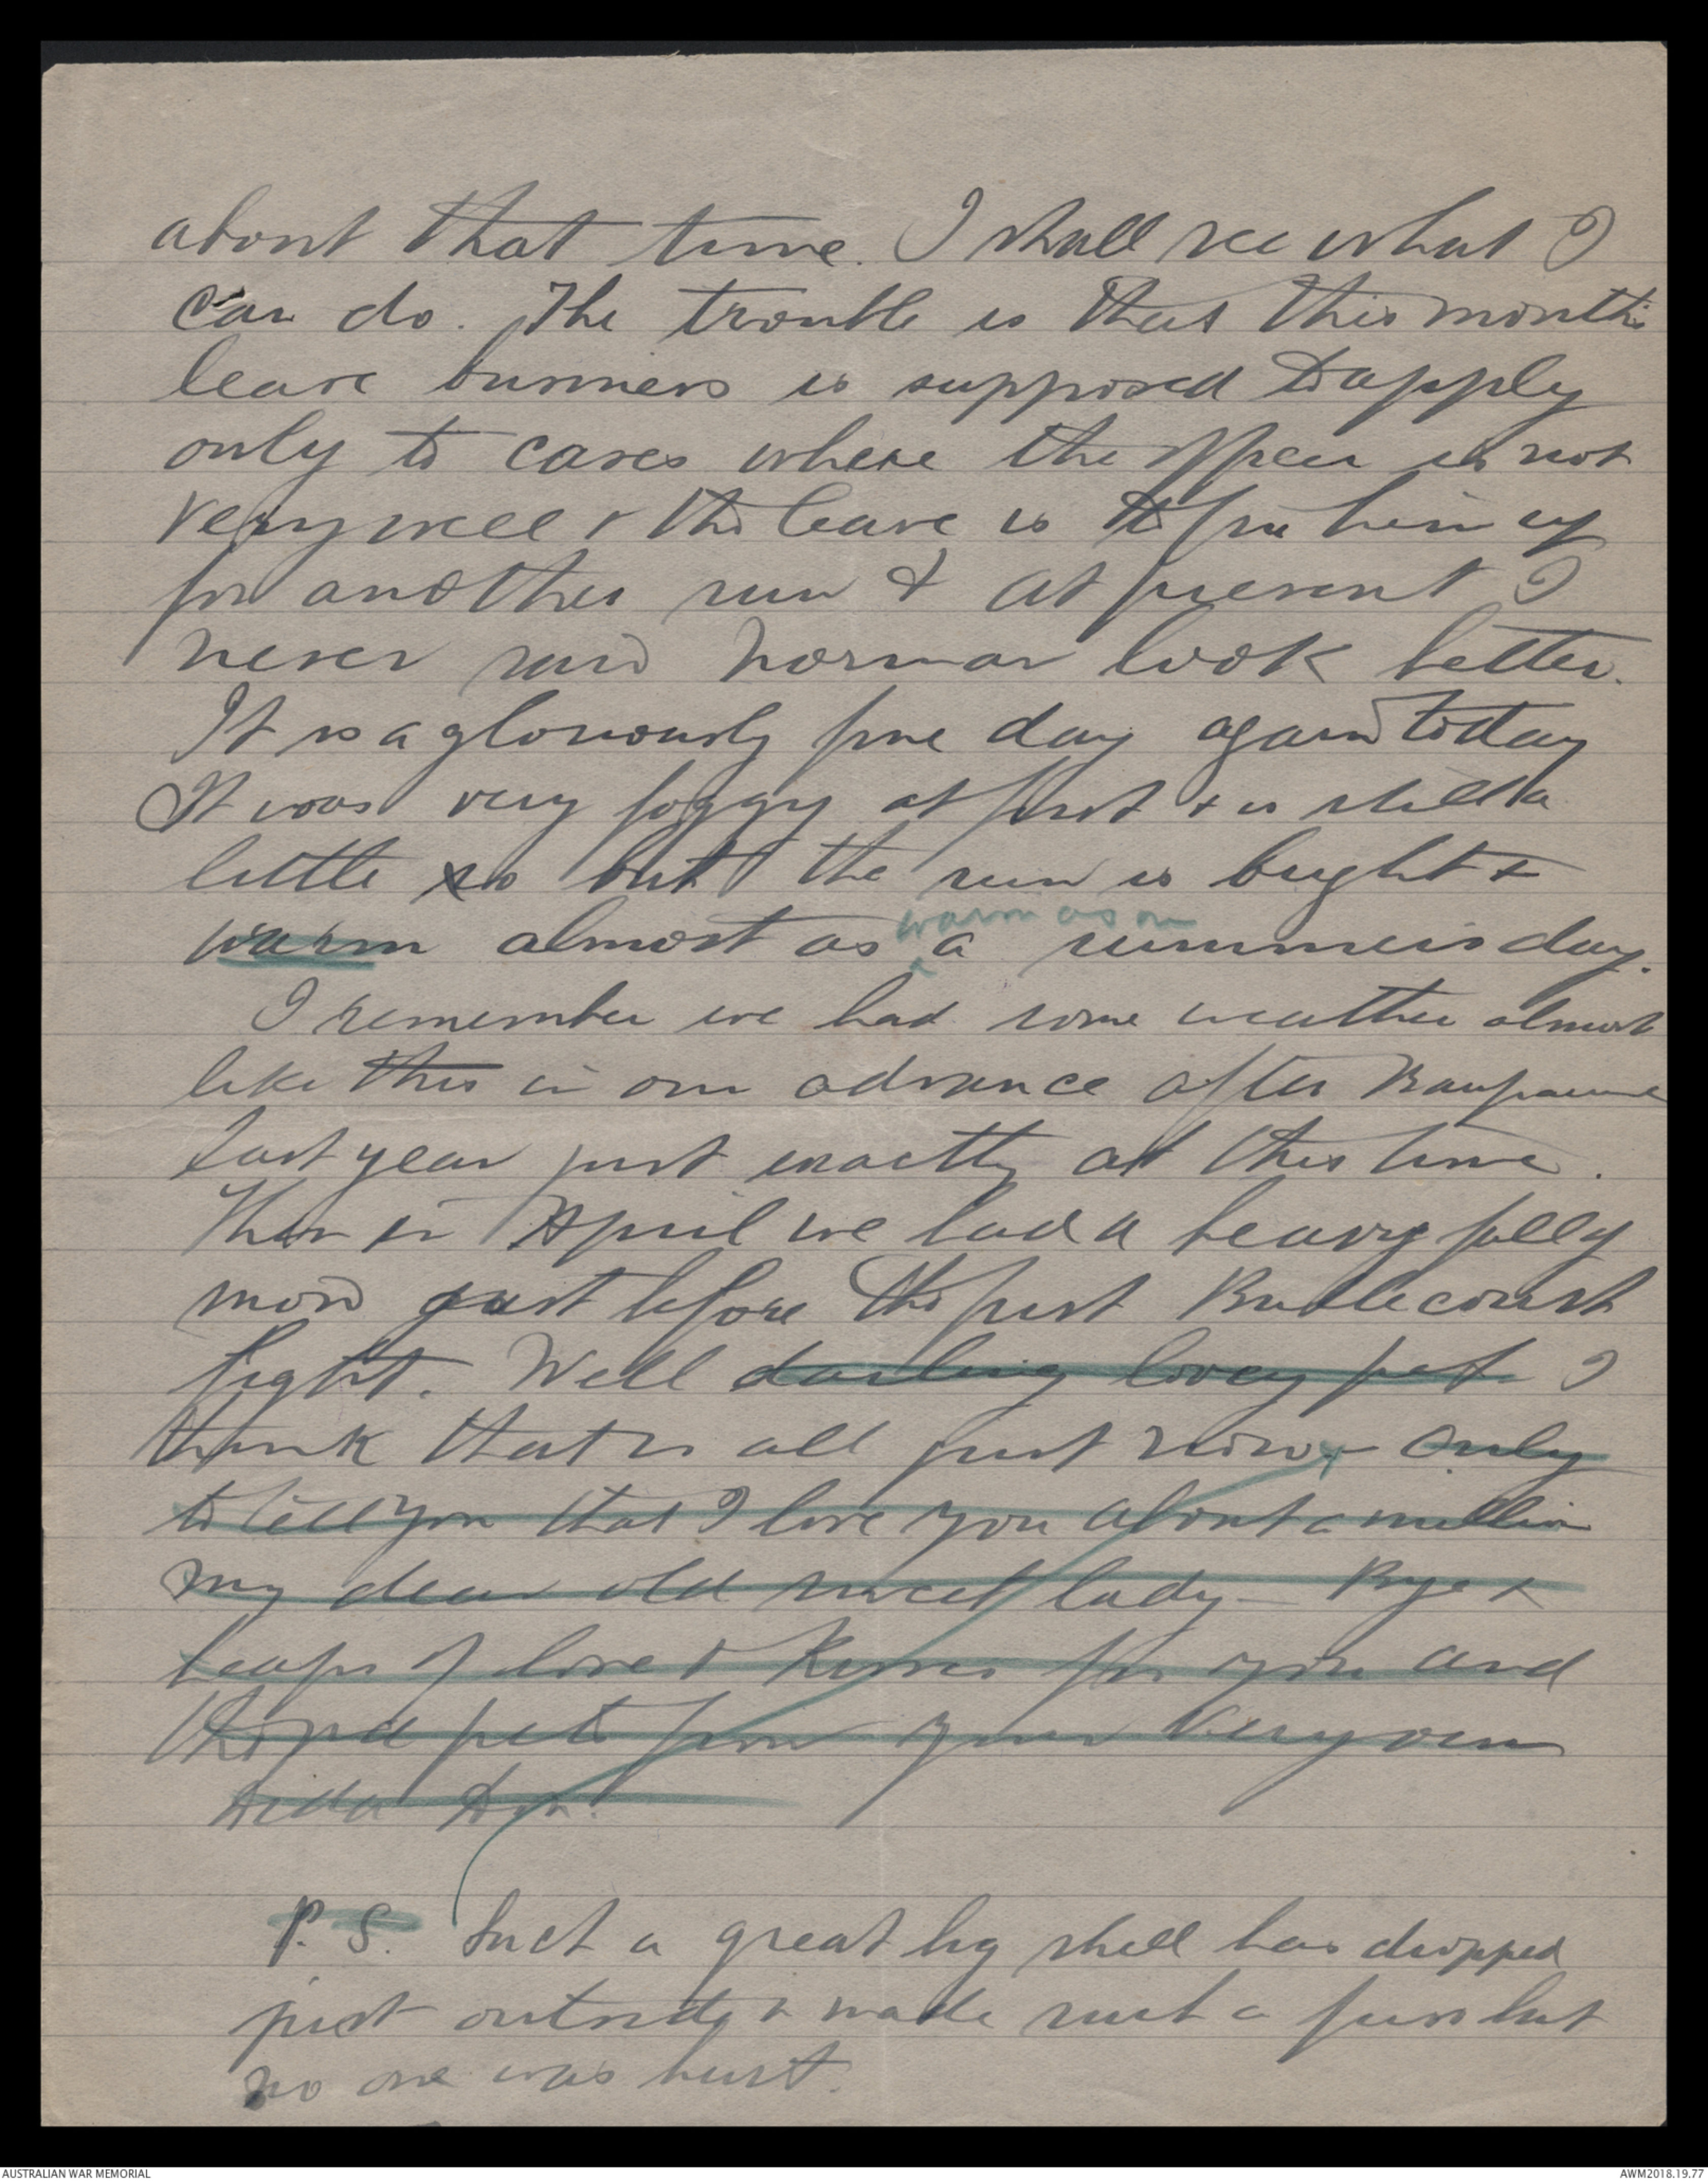 about that time. I shall see what I
can do. The trouble is that this months
leave business is supposed to apply
only to cases where the officer is not
very well & the leave is to fix him up
for another run & at present I
never saw Norman look better.
It is a gloriously fine day again today
It was very foggy at first & is still a
little so but the sun is bright &
warm as on
warm almost as a summers day.
I remember we had some weather almost
like this in our advance after Baupaume
last year just exactly at this time.
Then in April we had a heavy fall of
snow just before the first Bullecourt
fight. Well darling lovey pet I
think that is all just now - only
to tell you that I love you about a million
my dear old sweet lady - Bye &
heaps of love & kisses for you and
the pets from your very own
P.S. Such a great big shell has dropped
just outside & made such a fuss but
no one was hurt.
AUSTRALIAN WAR MEMORIAL
AWM2018.19.77